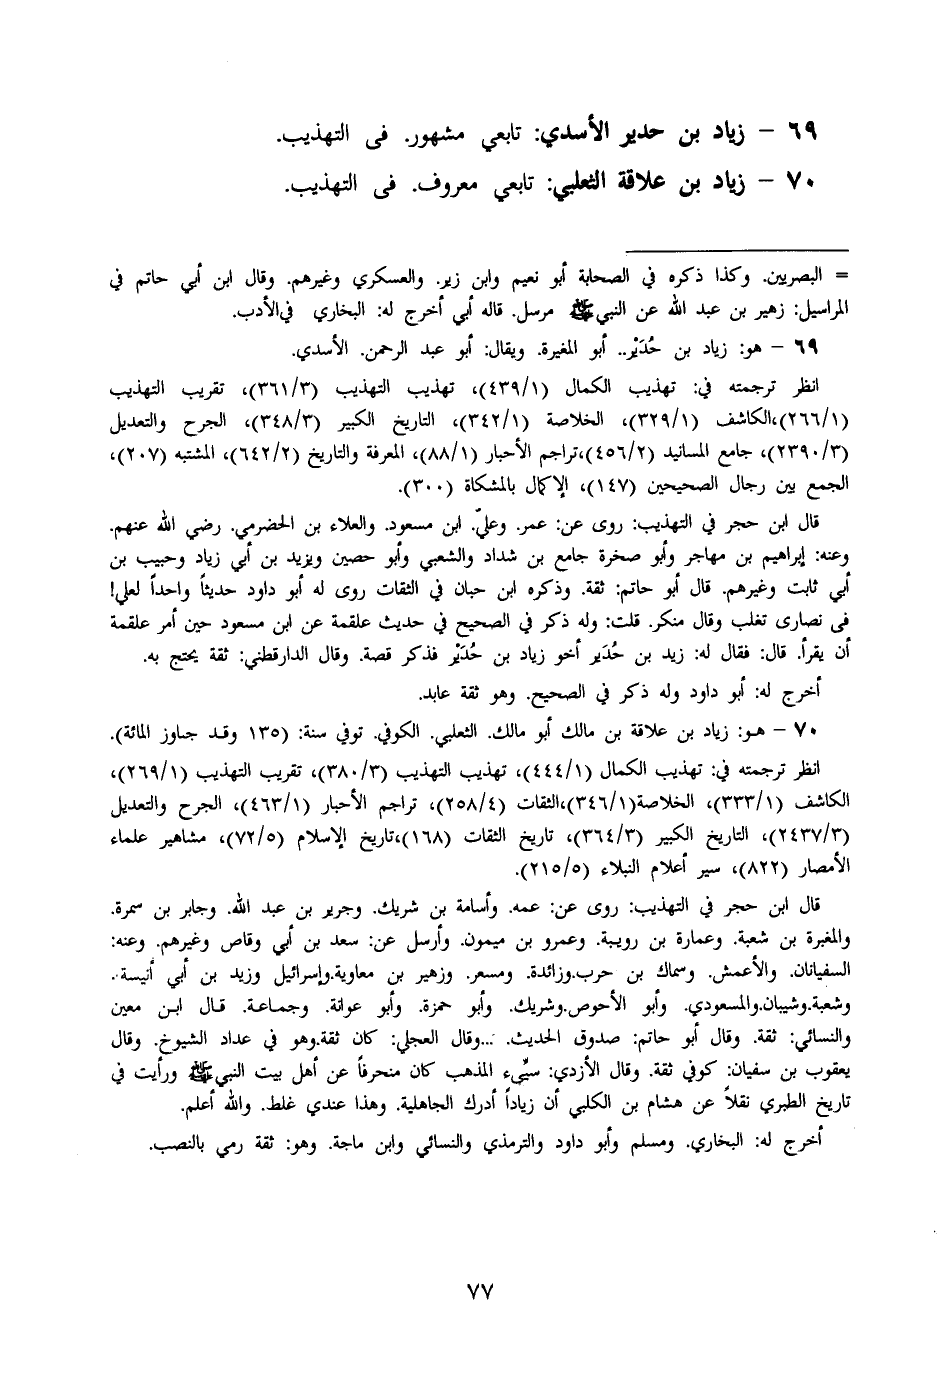 ٦٩ – زياد بن حدير الأسدي: تابعي مشهور. فى التهذيب.
٧٠ – زياد بن علاقة الثعلبي: تابعي معروف. فى التهذيب.
= البصريين. وكذا ذكره في الصحابة أبو نعيم وابن زير. والعسكري وغيرهم. وقال ابن أبي حاتم في
المراسيل: زهير بن عبد الله عن النبي ﷺ مرسل. قاله أبي أخرج له: البخاري في الأدب.
٦٩ – هو: زياد بن حُدَيْر.. أبو المغيرة. ويقال: أبو عبد الرحمن. الأسدي.
انظر ترجمته في: تهذيب الكمال (٤٣٩/١)، تهذيب التهذيب (٣٦١/٣)، تقريب التهذيب
(٢٦٦/١)،الكاشف (٣٢٩/١)، الخلاصة (٣٤٢/١)، التاريخ الكبير (٣٤٨/٣)، الجرح والتعديل
(٢٣٩٠/٣)، جامع المسانيد (٤٥٦/٢)،تراجم الأحبار (٨٨/١)، المعرفة والتاريخ (٦٤٢/٢)، المشتبه (٢٠٧)،
الجمع بين رجال الصحيحين (١٤٧)، الإكمال بالمشكاة (٣٠٠).
قال ابن حجر في التهذيب: روى عن: عمر. وعليّ. ابن مسعود. والعلاء بن الحضرمي. رضي الله عنهم.
وعنه: إبراهيم بن مهاجر وأبو صخرة جامع بن شداد والشعبي وأبو حصين ويزيد بن أبي زياد وحبيب بن
أبي ثابت وغيرهم. قال أبو حاتم: ثقة. وذكره ابن حبان في الثقات روى له أبو داود حديثاً واحداً لعلي!
فى نصارى تغلب وقال منكر. قلت: وله ذكر في الصحيح في حديث علقمة عن ابن مسعود حين أمر علقمة
أن يقرأ. قال: فقال له: زيد بن حُدَير أخو زياد بن حُدَيْر فذكر قصة. وقال الدارقطني: ثقة يحتج به.
أخرج له: أبو داود وله ذكر في الصحيح. وهو ثقة عابد.
٧٠ – هـو: زياد بن علاقة بن مالك أبو مالك. الثعلبي. الكوفي. توفي سنة: (١٣٥ وقـد جـاوز المائة).
انظر ترجمته في: تهذيب الكمال (٤٤٤/١)، تهذيب التهذيب (٣٨٠/٣)، تقريب التهذيب (٢٦٩/١)،
الكاشف (٣٣٣/١)، الخلاصة(٣٤٦/١)،الثقات (٢٥٨/٤)، تراجم الأحبار (٤٦٣/١)، الجرح والتعديل
(٢٤٣٧/٣)، التاريخ الكبير (٣٦٤/٣)، تاريخ الثقات (١٦٨)،تاريخ الإسلام (٧٢/٥)، مشاهير علماء
الأمصار (٨٢٢)، سير أعلام النبلاء (٢١٥/٥).
قال ابن حجر في التهذيب: روى عن: عمه. وأسامة بن شريك. وجرير بن عبد الله. وجابر بن سمرة.
والمغيرة بن شعبة. وعمارة بن رويبة. وعمرو بن ميمون. وأرسل عن: سعد بن أبي وقاص وغيرهم. وعنه:
السفيانان. والأعمش. وسماك بن حرب.وزائدة. ومسعر. وزهير بن معاوية.وإسرائيل وزيد بن أبي أنيسة.
وشعبة.وشيبان.والمسعودي. وأبو الأحوص.وشريك. وأبو حمزة. وأبو عوانة. وجمـاعـة. قـال ابـن معين
والنسائي: ثقة. وقال أبو حاتم: صدوق الحديث. ...وقال العجلي: كان ثقة.وهو في عداد الشيوخ. وقال
يعقوب بن سفيان: كوفي ثقة. وقال الأزدي: سيِّىء المذهب كان منحرفاً عن أهل بيت النبي ﷺ ورأيت في
تاريخ الطبري نقلاً عن هشام بن الكلبي أن زياداً أدرك الجاهلية. وهذا عندي غلط. والله أعلم.
أخرج له: البخاري. ومسلم وأبو داود والترمذي والنسائي وابن ماجة. وهو: ثقة رمي بالنصب.
٧٧